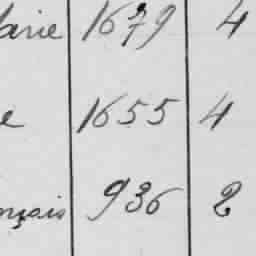 arie 1679 4
e 1655 4
nçois 936 2